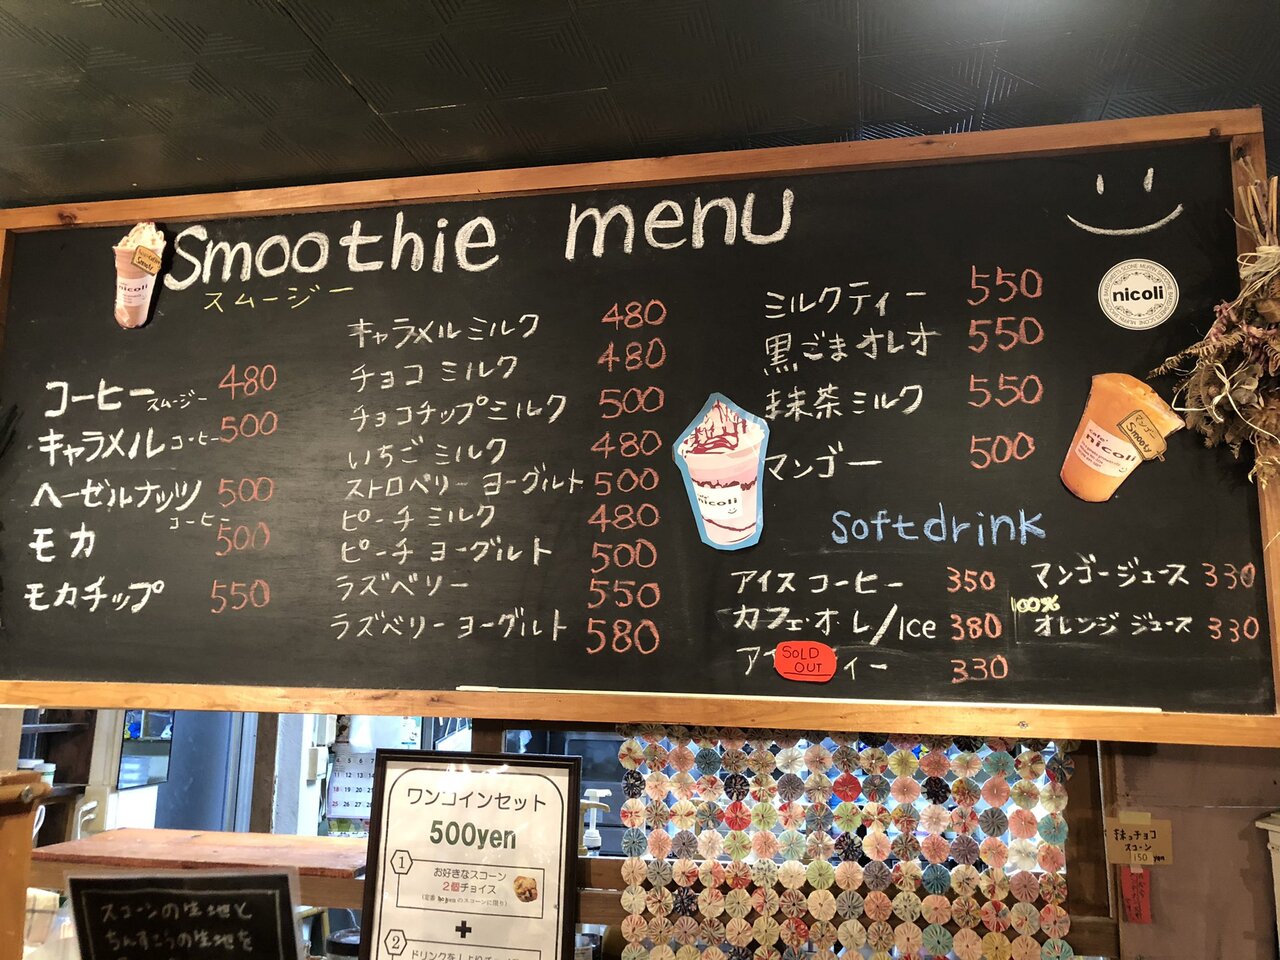 Smoothie menu
スムージー
コーヒースムージー 480
キャラメルコーヒー 500
ヘーゼルナッツコーヒー 500
モカ 500
モカチップ 550
キャラメルミルク 480
チョコミルク 480
チョコチップミルク 500
いちごミルク 480
ストロベリーヨーグルト 500
ピーチミルク 480
ピーチヨーグルト 500
ラズベリー 550
ラズベリーヨーグルト 580
ミルクティー 550
黒ごまオレオ 550
抹茶ミルク 550
マンゴー 500
nicoli
nicoli
マンゴー
Smooty
nicoli
nicoli
softdrink
アイスコーヒー 350
カフェ・オ・レ/Ice 380
ア ィー 330
SOLD
OUT
マンゴージュース 330
100%
オレンジジュース 330
ワンコインセット
500yen
1
お好きなスコーン
2個チョイス
+
2
スコーンの生地と
ちんすこうの生地を
抹っチョコ
スコーン
150 yen